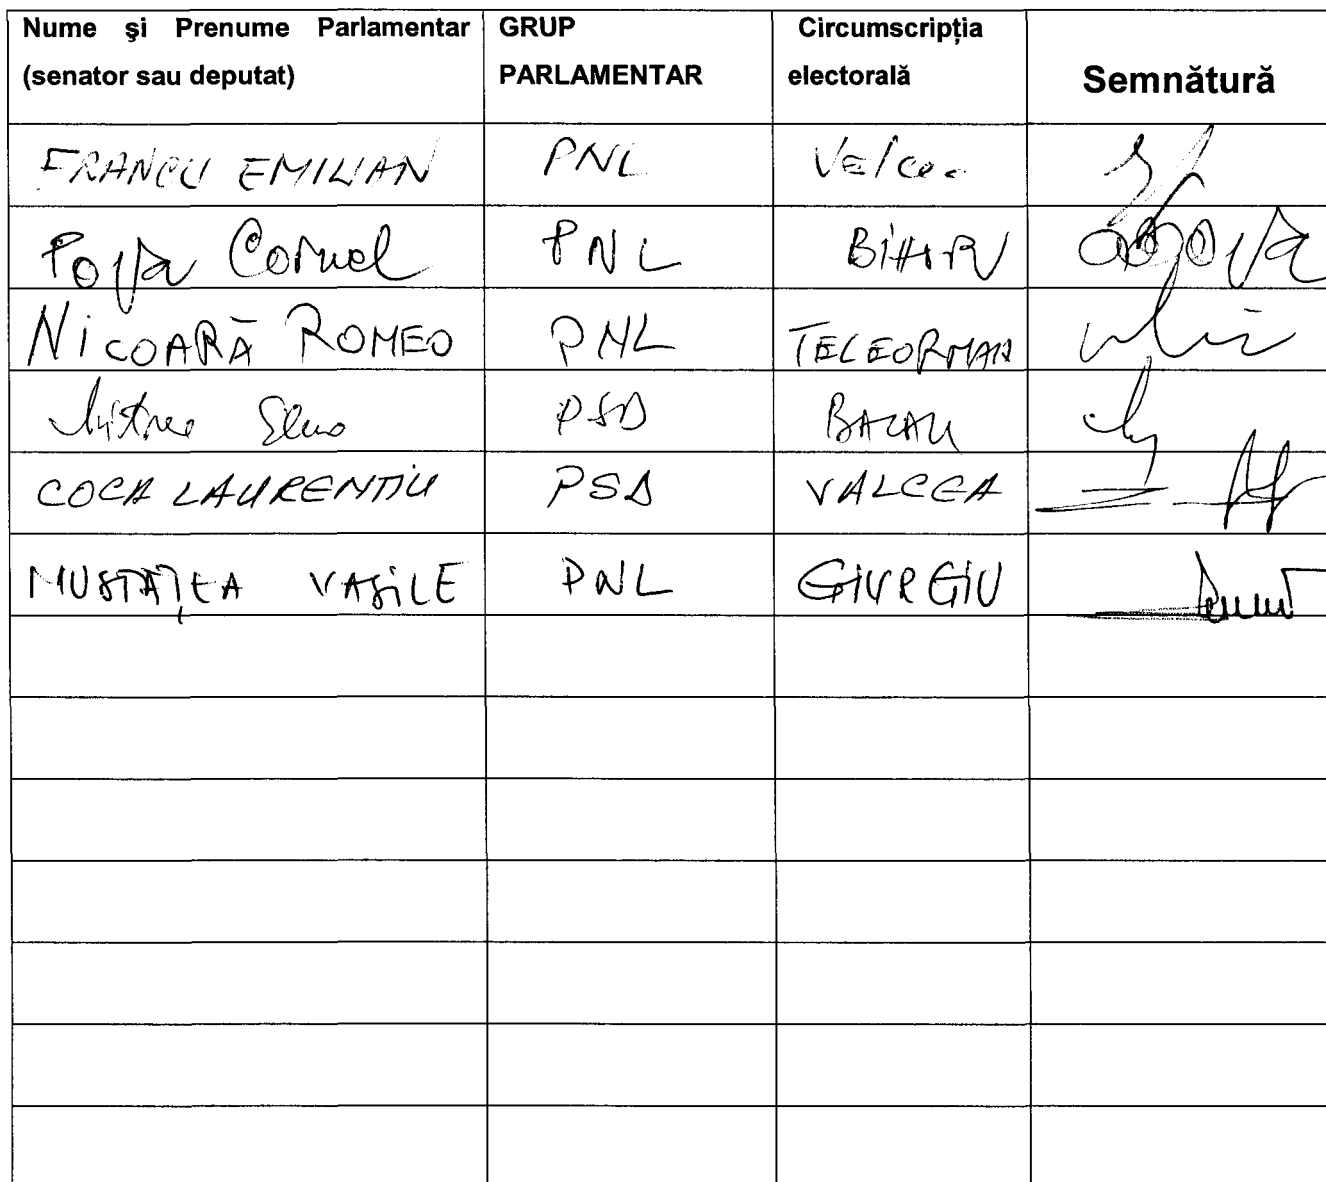 Nume şi Prenume Parlamentar (senator sau deputat) GRUP PARLAMENTAR Circumscripţia electorală Semnătură
FRANCU EMILIAN PNL
Popa Cornel PNL BIHOR
NICOARĂ ROMEO PNL TELEORMAN
PSD BACAU
COCA LAURENTIU PSD VALCEA
MUSTĂŢEA VASILE PNL GIURGIU